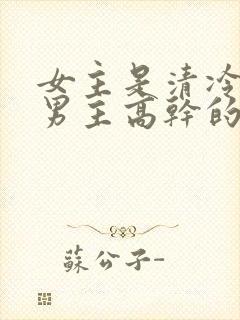 女主是清冷
男主高幹的
蘇公子-